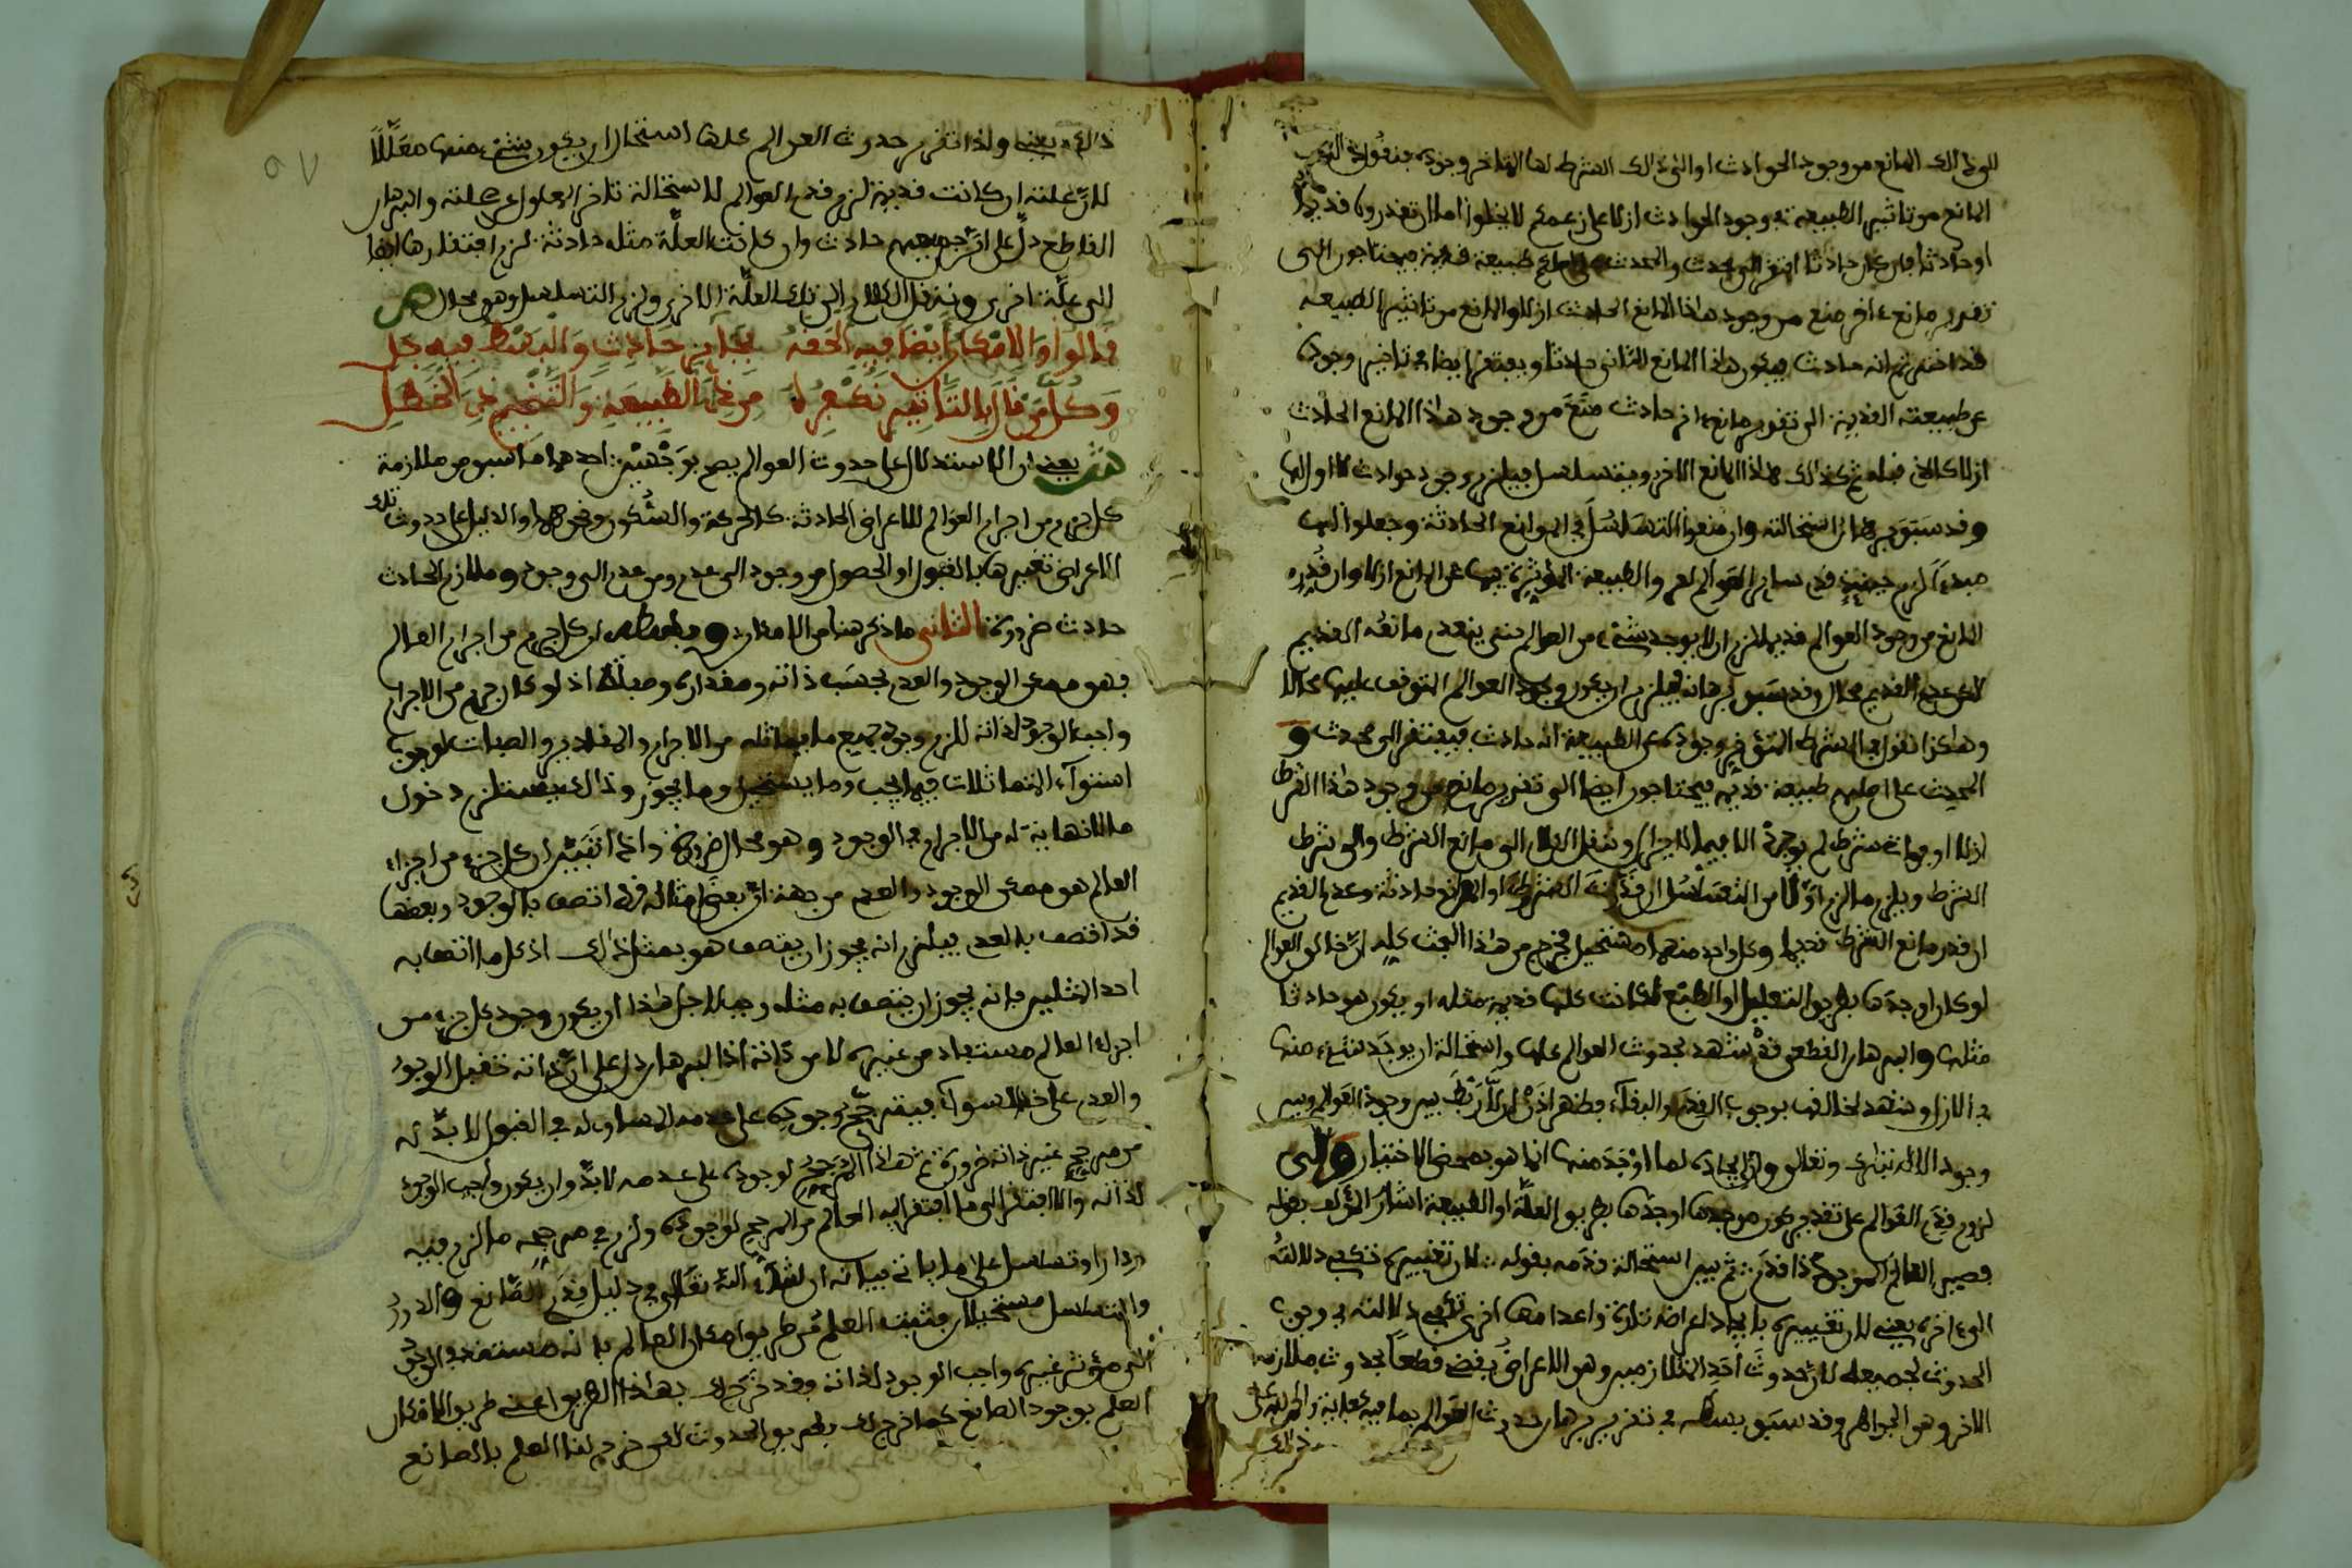 لذلك المانع من وجود الحوادث او الى ذلك الشرط لها المتاخر وجوده فنقول
المانع من تاثير الطبيعة في وجود الحوادث ازلا على زعمكم لا يخلو اما ان تقدروه قديما
او حادثا فان كان حادثا افتقر الى محدث والمحدث على اصلكم طبيعة قديمة فيحتاجون الى
تقدير مانع ءاخر منع من وجود هاذا المانع الحادث ازلا والمانع من تاثير الطبيعة
قد اخترتم انه حادث فيكون هاذا المانع الثاني حادثا ويفتقر ايضا في تاخير وجوده
عن طبيعته القديمة الى تقدير مانع ءاخر حادث منع من وجود هاذا المانع الحادث
ازلا كالذي قبله ثم كذلك هاذا المانع الاخر ويتسلسل فيلزم وجود حوادث لا اول لها
وقد سبق برهان استحالته وان منعوا التسلسل في الموانع الحادثة وجعلوا لها
مبدءا لزم حينئذ قدم ساير العوالم لعرو الطبيعة المؤثرة فيها عن المانع ازلا وان قدروه
المانع من وجود العوالم قديما لزم ان لا يوجد شيء من العوالم حتى ينعدم مانعه القديم
لاكن عدم القديم محال وقد سبق برهانه فيلزم ان يكون وجود العوالم المتوقف عليه محالا
وهاكذا نقول في الشرط المؤخر وجوده عن الطبيعة انه حادث فيفتقر الى محدث و
المحدث على اصلهم طبيعة قديمة فيحتاجون ايضا الى تقدير مانع من وجود هاذا الشرط
ازلا او فوات شرط لم يوجد الا فيما لا يزال وننقل الكلام الى مانع الشرط والى شرط
الشرط ويلزم ما لزم اولا من التسلسل ان قدرت الشروط او الموانع حادثة وعدم القديم
ان قدر مانع الشرط قديما وكل واحد منهما مستحيل فخرج من هاذا البحث كله ان خالق العوالم
لو كان اوجدها بطريق التعليل او الطبع لكانت كلها قديمة مثله او يكون هو حادثا
مثلها والبرهان القطعي قد شهد بحدوث العوالم كلها واستحالة ان يوجد شيء منها
في الازل وشهد لخالقها بوجوب القدم والبقاء فظهر اذن ان لا ربط بين وجود العوالم وبين
وجود الاله تبارك وتعالى وان ايجاده لما اوجد منها انما هو بمحض الاختيار والى
لزوم قدم العوالم على تقدير كون موجدها اوجدها بطريق العلة او الطبيعة اشار المؤلف بقوله
فصير العالم الموجود ذا قدم ثم بين استحالة قدمه بقوله لان تغييره تكفي دلالته
الى ءاخره يعني لان تغييره بايجاد اعراضه تارة واعدامها اخرى تكفي دلالته في وجوب
الحدوث لجميعه لان حدوث احد المتلازمين وهو الاعراض يقضي قطعا بحدوث ملازمه
الاخر وهو الجواهر وقد سبق بسطه في تقرير برهان حدوث العوالم بما فيه كفاية والحمد لله على
ذلك
ذلك يعني واذا تقرر حدوث العوالم كلها استحال ان يكون شيء منها معللا
لان علته ان كانت قديمة لزم قدم العوالم لاستحالة تاخر المعلول عن علته والبرهان
القاطع دل على ان جميعهم حادث وان كانت العلة مثله حادثة لزم افتقارها ايضا
الى علة اخرى وننقل الكلام الى تلك العلة الاخرى ولزم التسلسل وهو محال ص
قالوا والامكان ايضا فيه الحقه بجايز حادث والبسط فيه جل
وكل من قال بالتاثير نكفره من ذي الطبيعة والتنجيم ذي الخطل
ش يعني ان الاستدلال على حدوث العوالم يصح بوجهين احدهما ما سبق من ملازمة
كل جرم من اجرام العوالم للاعراض الحادثة كالحركة والسكون ونحوهما والدليل على حدوث تلك
الاعراض تغييرها بالقبول او الحصول من وجود الى عدم ومن عدم الى وجود وملازم الحادث
حادث ضرورة الثاني ما ذكر هنا من الامكان وهو ان كل جرم من اجرام العالم
فهو ممكن الوجود والعدم بحسب ذاته ومقداره وصفاته اذ لو كان جرم من الاجرام
واجب الوجود لذاته للزم وجود جميع ما يماثله من الاجرام والمقادير والصفات لوجوب
استواء المتماثلات فيما يجب وما يستحيل وما يجوز وذلك يستلزم دخول
ما لا نهاية له من الاجرام في الوجود وهو محال ضرورة واذا تبين ان كل جزء من اجزاء
العالم هو ممكن الوجود والعدم من جهة ان بعض امثاله قد اتصف بالوجود وبعضها
قد اتصف بالعدم فيلزم انه يجوز ان يتصف هو بمثل ذلك اذ كل ما اتصف به
احد المثلين فانه يجوز ان يتصف به مثله وجب لاجل هذا ان يكون وجود كل جزء من
اجزاء العالم مستفاد من غيره لا من ذاته اذ البرهان دل على ان ذاته تقبل الوجود
والعدم على السواء فيترجح وجوده على عدمه المساوي له في القبول لا بد له
من مرجح غير ذاته ضرورة ثم هاذا المرجح لوجوده على عدمه لا بد وان يكون واجب الوجود
لذاته والا افتقر الى ما افتقر اليه العالم من المرجح لوجوده ولزم في مرجحه ما لزم فيه
ودار او تسلسل على ما ياتي بيانه ان شاء الله تعالى في دليل قدم الصانع والدور
والتسلسل مستحيلان فثبت العلم من طريق امكان العالم بانه مستند في الوجود
الى مؤثر غيره واجب الوجود لذاته وقد خرج لك بهاذا الطريق اعني طريق الامكان
العلم بوجود الصانع كما خرج لك بطريق الحدوث لاكن خرج لنا العلم بالصانع